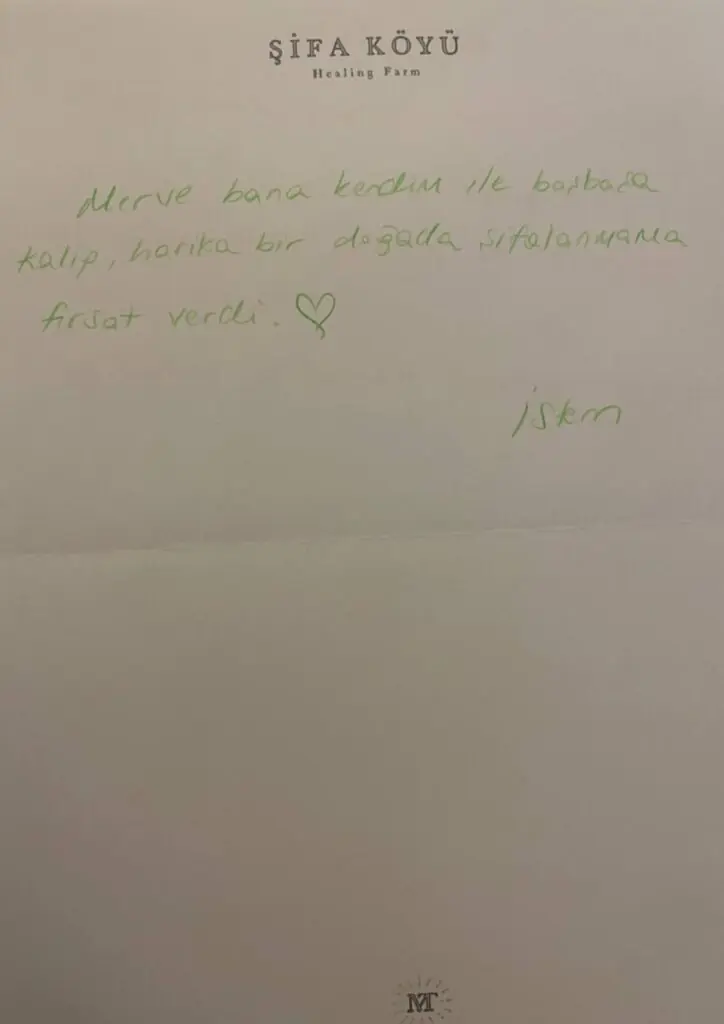 ŞİFA KÖYÜ
Healing Farm
Merve bana kendim ile başbaşa
kalıp, harika bir doğada şifalanmama
fırsat verdi. ♡
MT